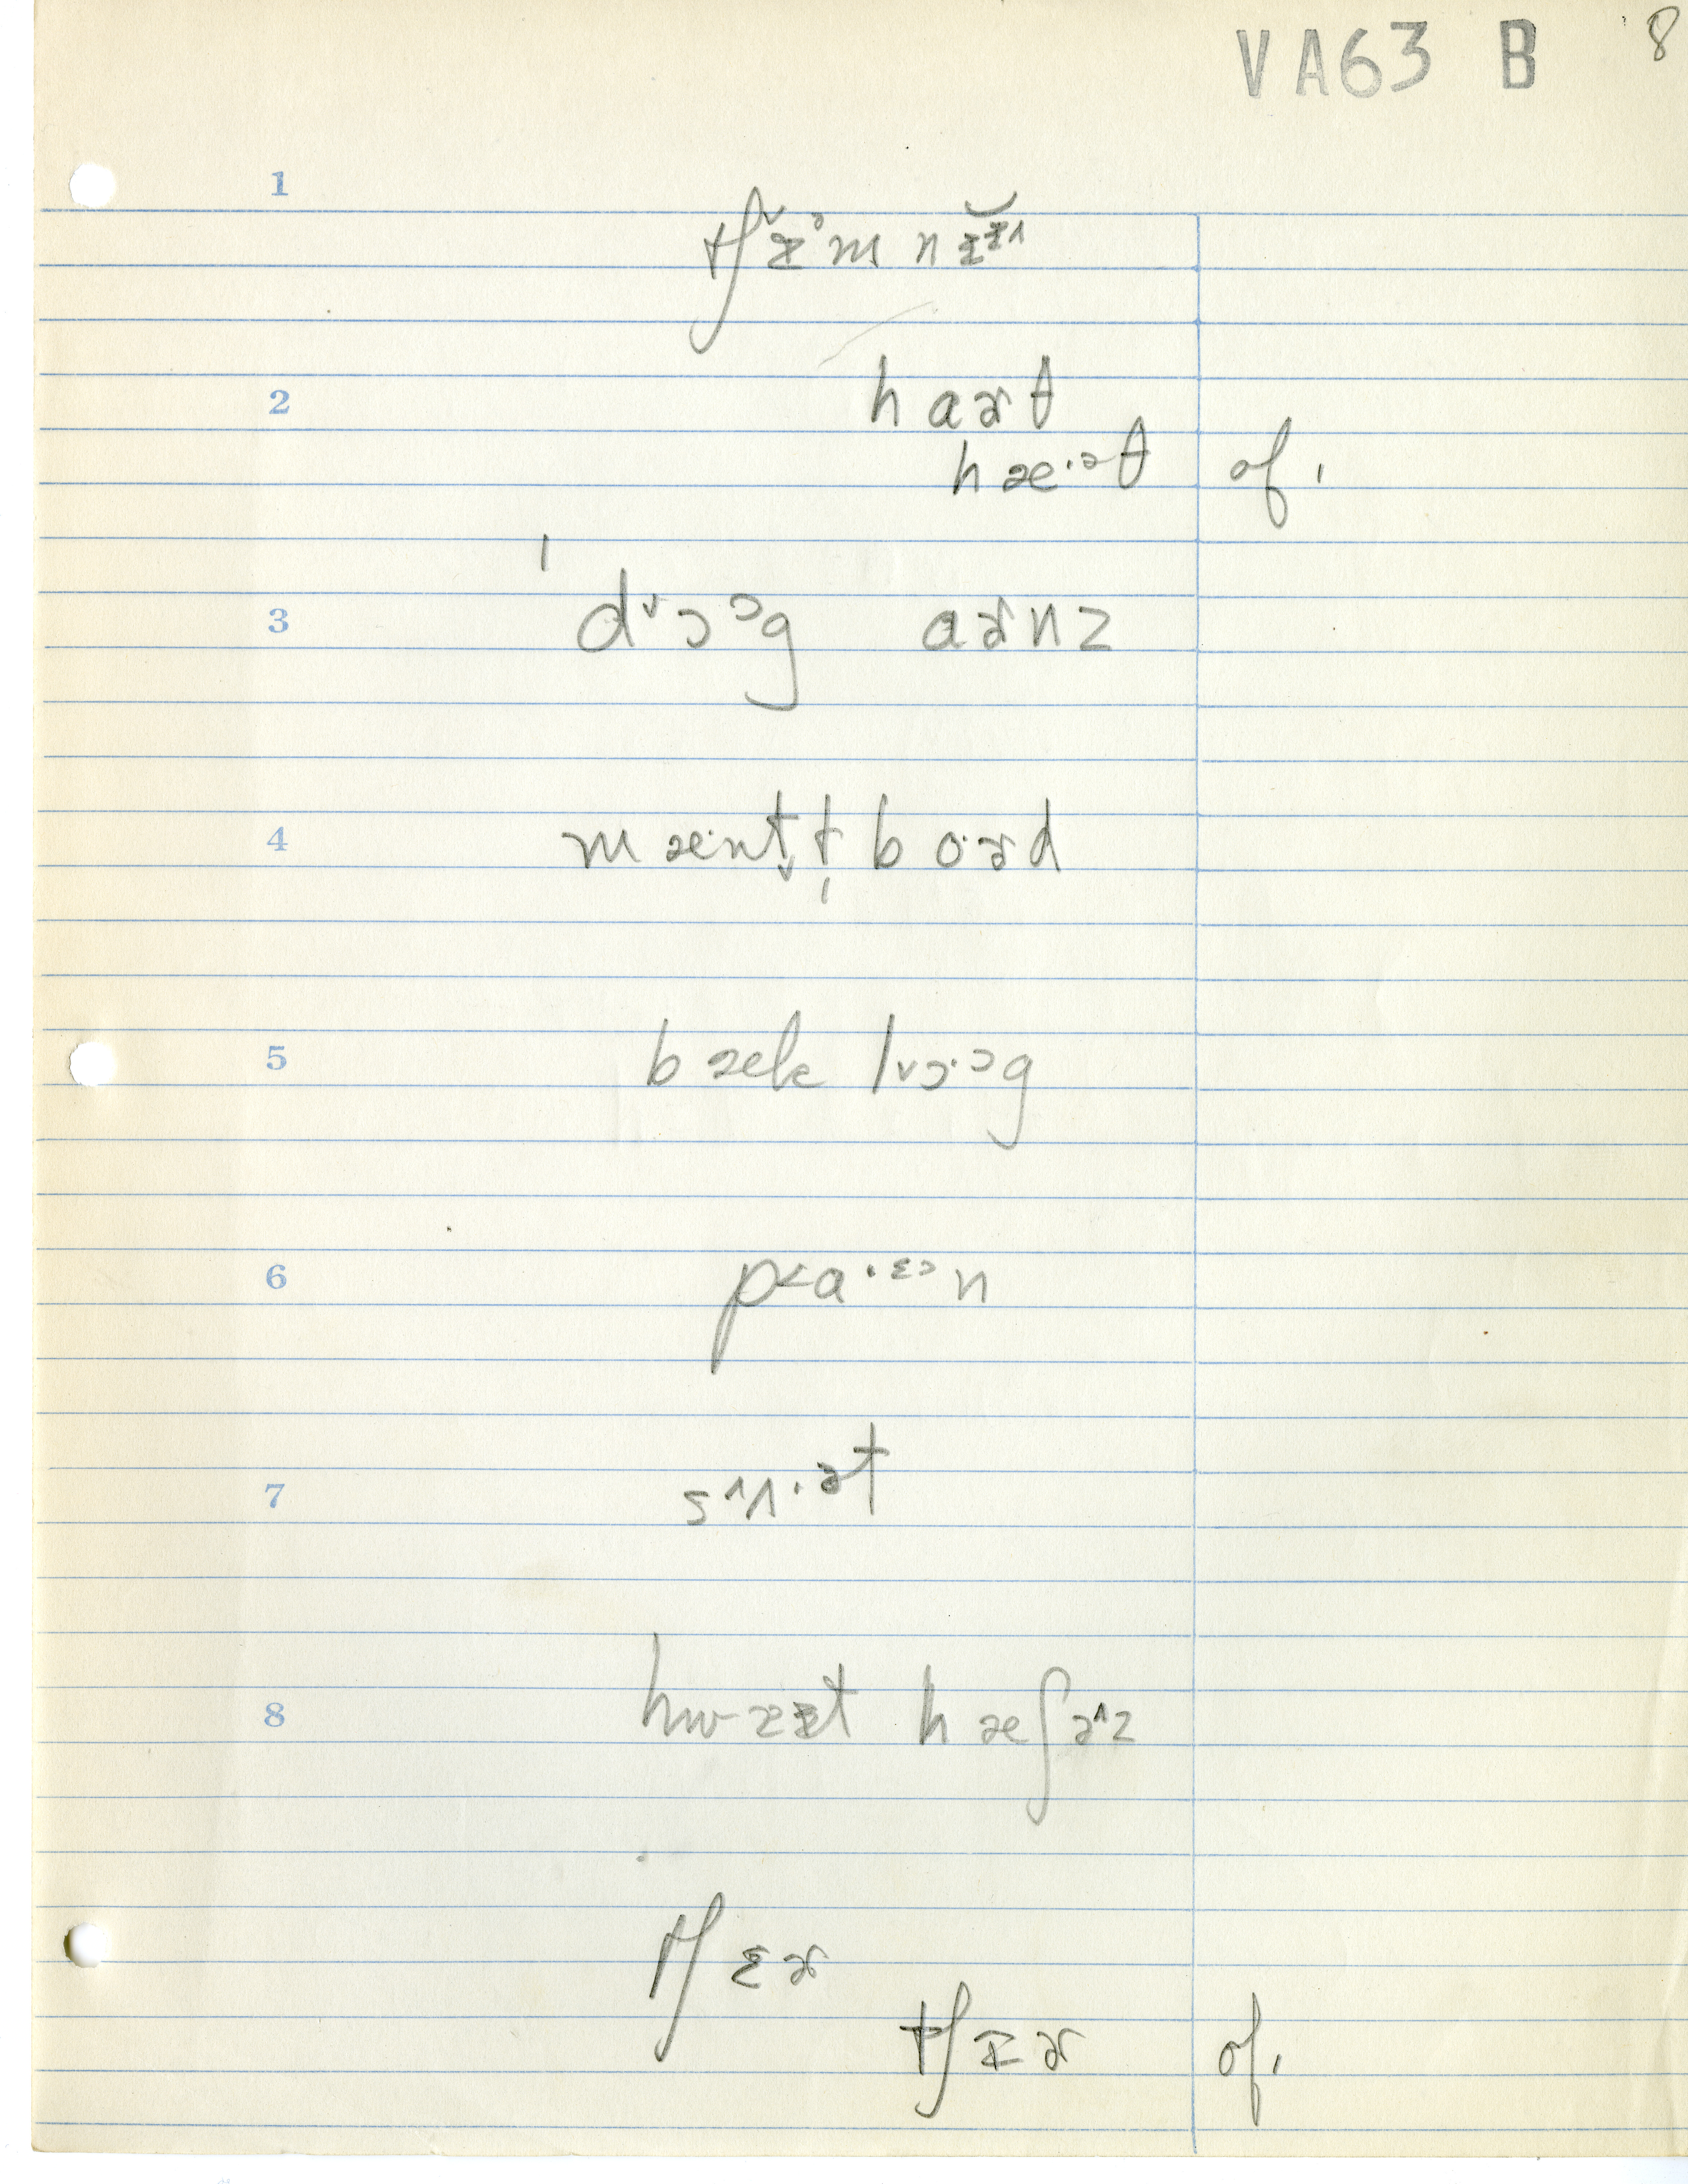 VA63 B 8
1
tʃɪ̆ᵊm nɪ̆ɪ^
2
haɚθ
hæ·ᵊθ of.
3
ˈd˅ɔᵓg aɚnz
4
mæ·nt̬ɫ̩boɚd
5
bæk l˅ɔ·ᵓg
6
p<a·ᵋ>n
7
s^ʌ·ɚt
8
hwɪɨt hæʃɚ^z
tʃɛɚ
tʃɪɚ of.